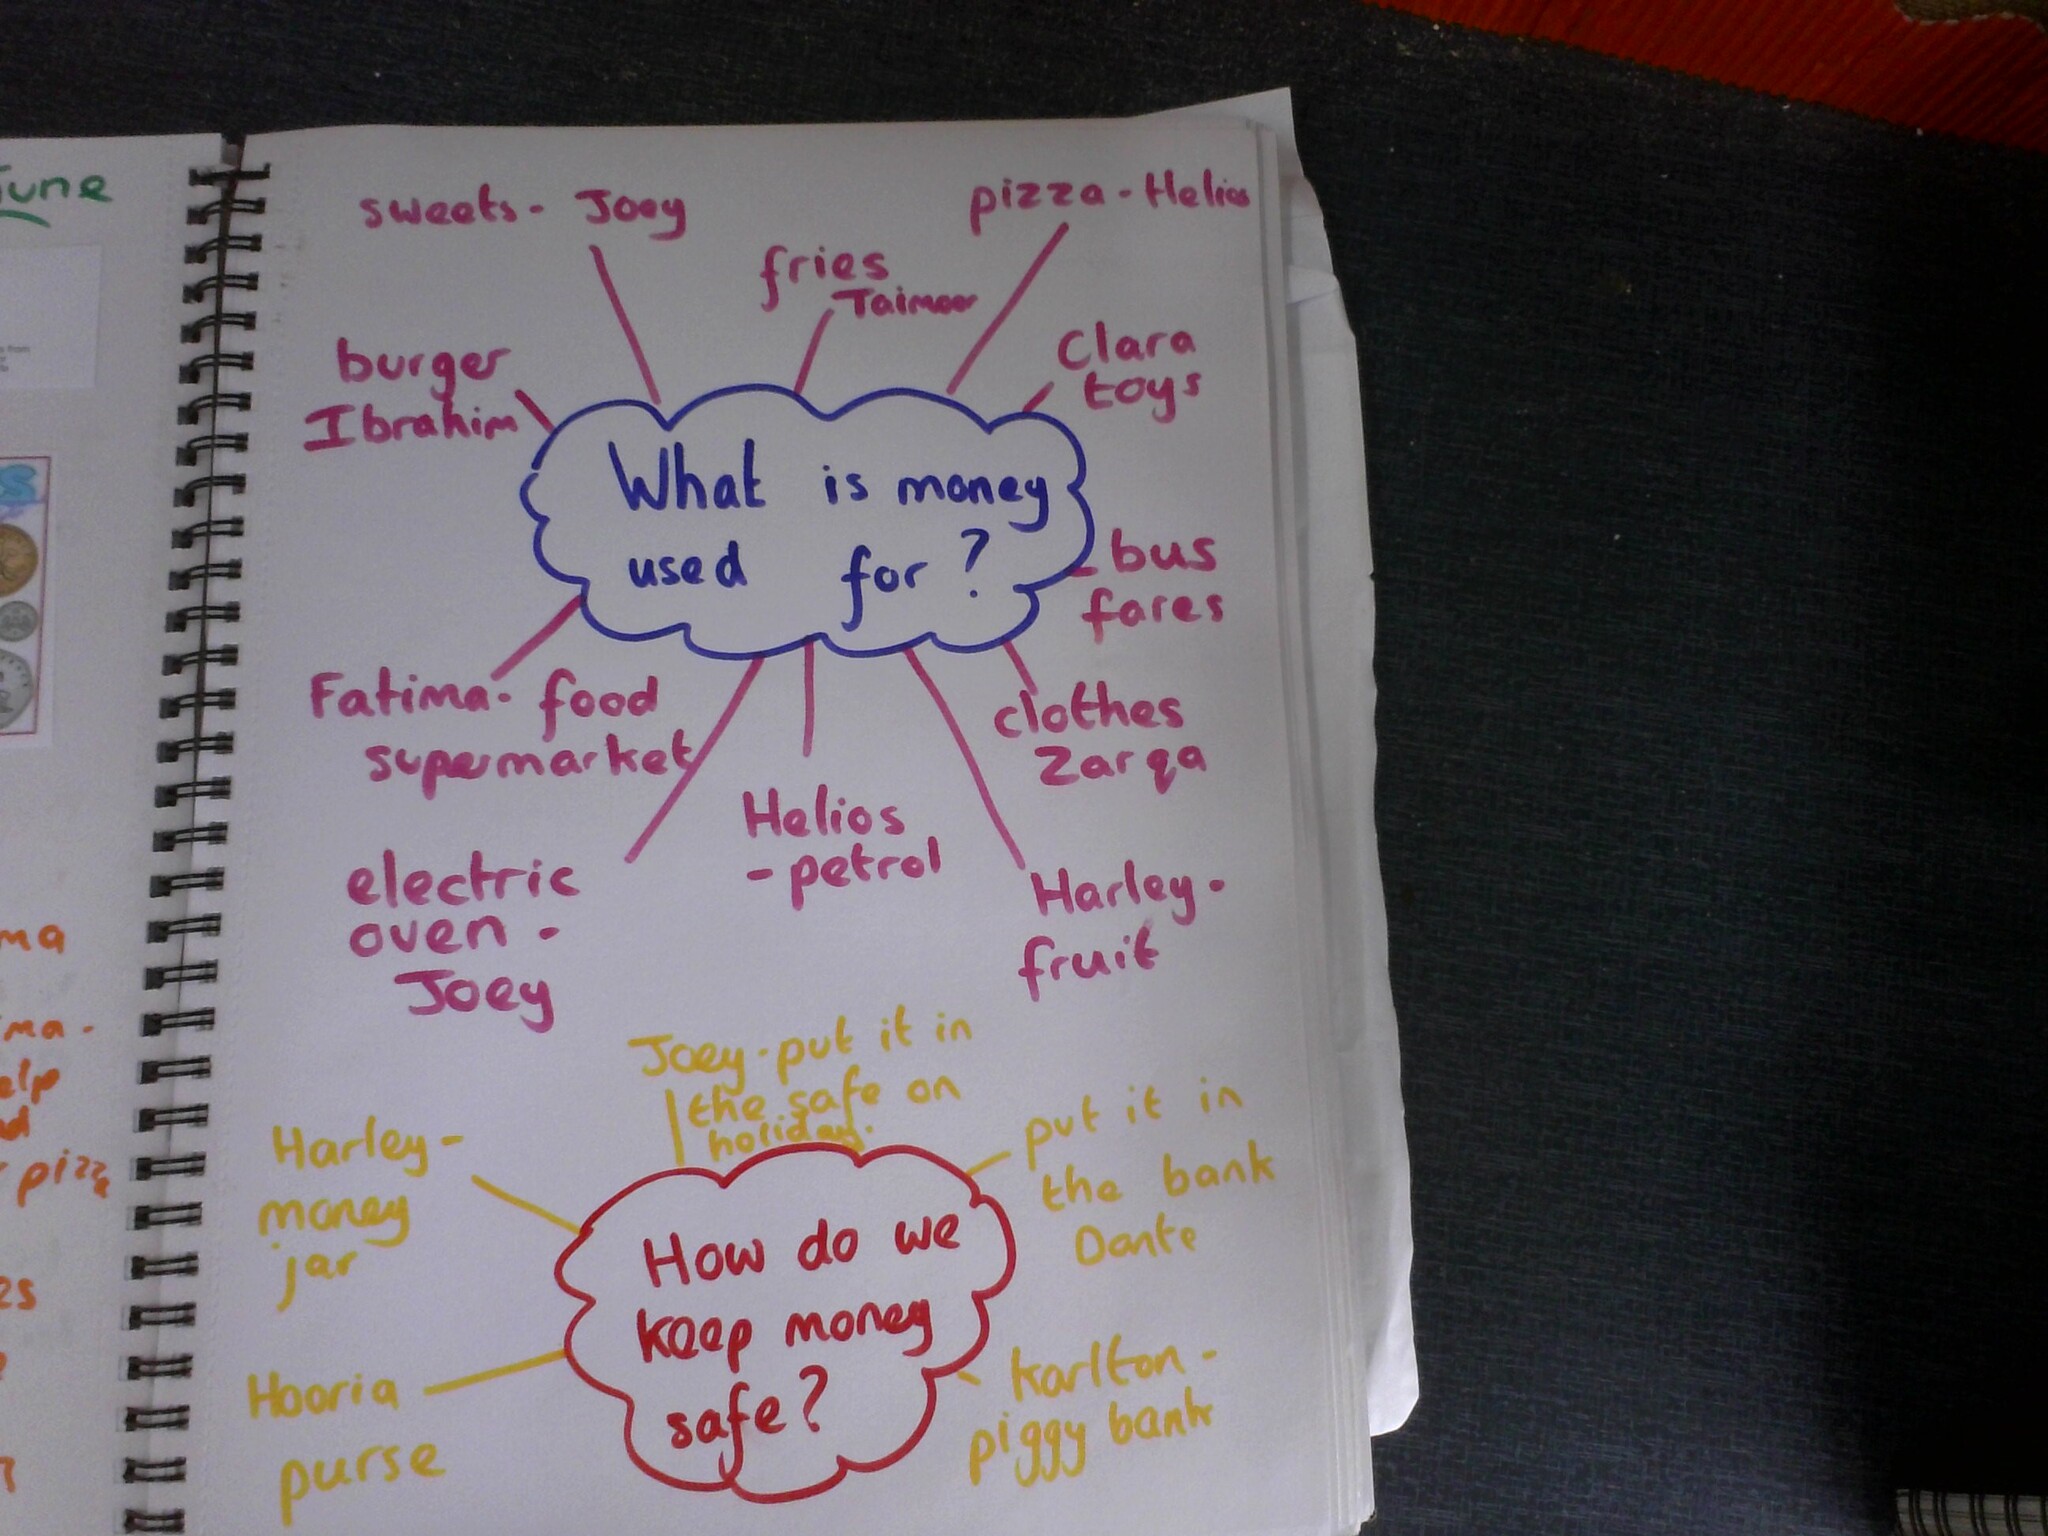 June
sweets - Joey
pizza - Helios
fries
Taimoor
burger
Ibrahim
Clara
toys
What is money
used for?
bus
fares
Fatima - food
supermarket
clothes
Zarqa
Helios
- petrol
electric
oven -
Joey
Harley -
fruit
Joey - put it in
the safe on
holiday.
put it in
the bank
Dante
Harley -
money
jar
How do we
keep money
safe?
Hooria
purse
Karlton -
piggy bank
ma
ma -
elp
pizza
es